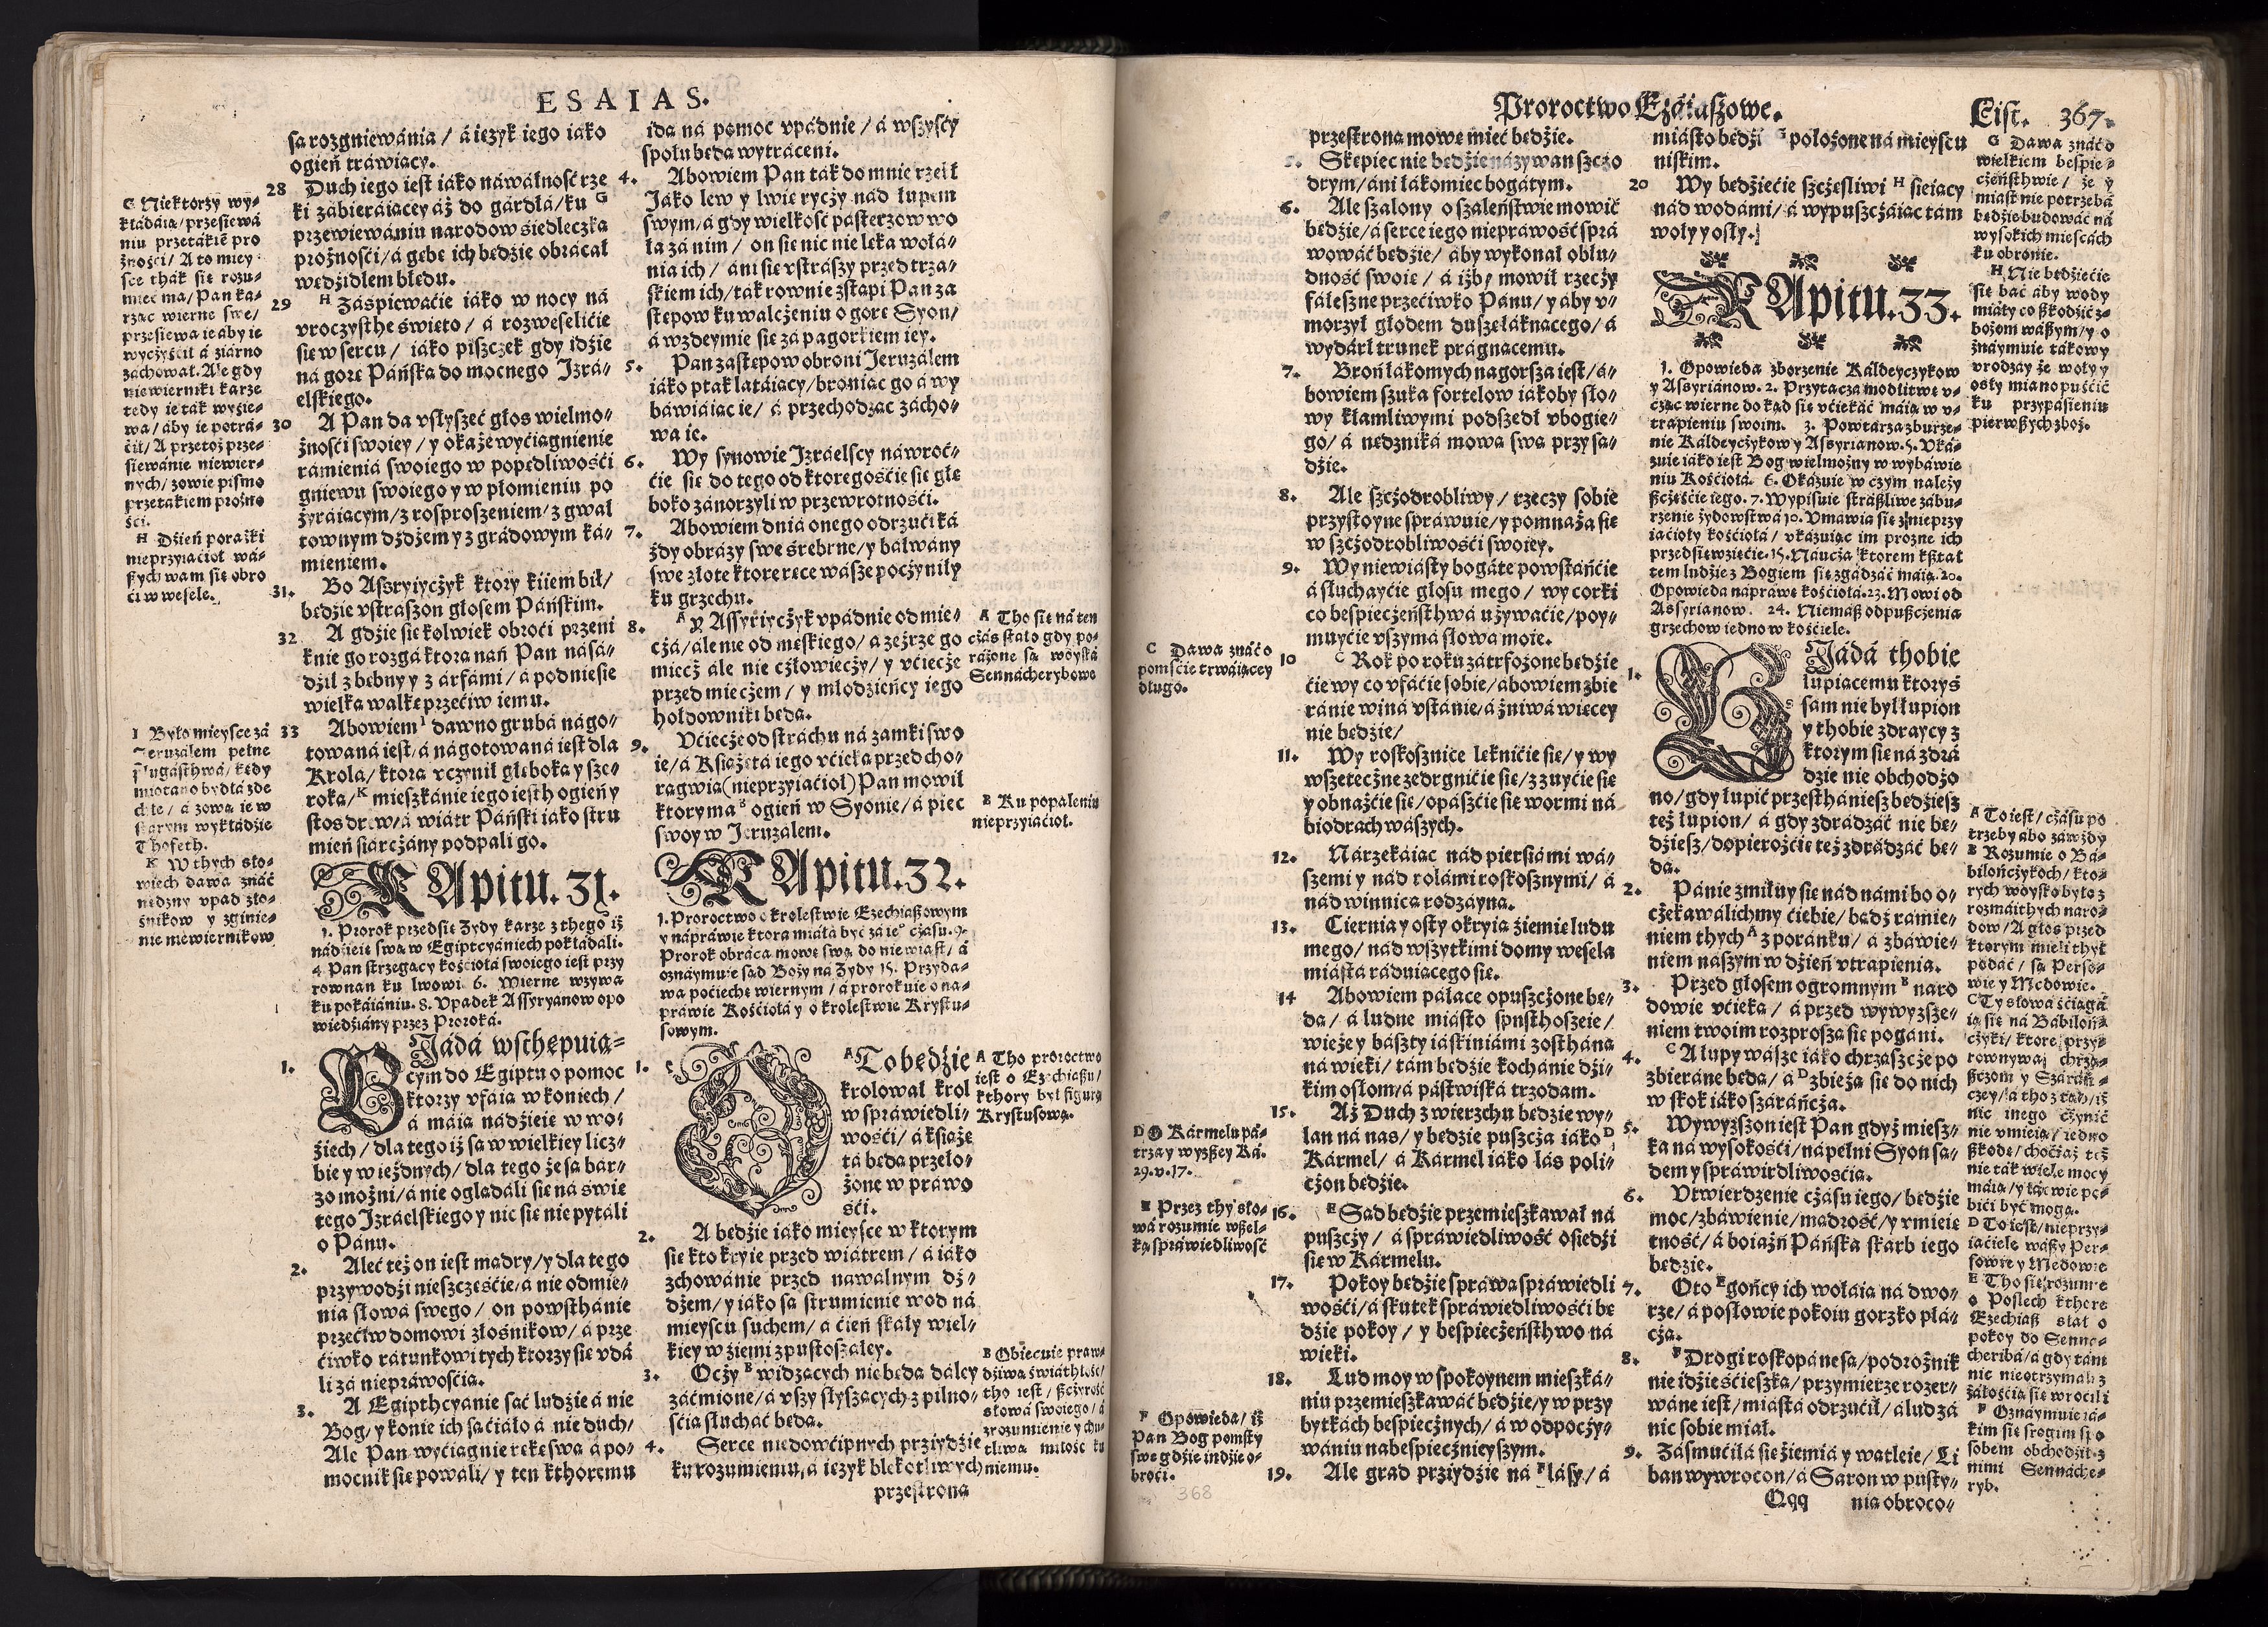 ESAIAS.
są rozgniewánia / á ięzyk iego iáko
ogień trawiący.
28 Duch iego iest iáko náwáłność rze
ki zábieráiącey áż do gárdłá / ku G
przewiewániu narodow siedleczká
prożności / á gębę ich będzie obrácał
wędzidłem błędu.
29 H Záspiewacie iáko w nocy ná
vroczysthe święto / á rozweselicie
się w sercu / iáko piszczek gdy idzie
ná gorę Páńską do mocnego Izrá-
elskiego.
30 A Pan da vsłyszeć głos wielmo-
żności swoiey / y okaże wyciągnienie
rámieniá swoiego w popędliwości
gniewu swoiego y w płomieniu po
żyráiącym / z rosproszeniem / z gwał
townym dżdżem y z grádowym ká-
mieniem.
31. Bo Assyriyczyk ktory kiiem bił /
będzie vstraszon głosem Páńskim.
32 A gdzie się kolwiek obroci przeni
knie go rozgá ktorą nań Pan násá-
dził z bębny y z árfámi / á podniesie
wielką walkę przeciw iemu.
33 Abowiem I dawno grubá nágo-
towaná iest / á nágotowaná iest dla
Krolá / ktorą vczynił głęboką y sze-
roką / K mieszkánie iego iesth ogień y
stos drew / á wiátr Páński iáko stru
mień siárczány podpali go.
G Niektorzy wy-
kłádáią / przesiewá
niu przetákiẽ pro
żności / A to miey
sce thák się rozu-
mieć ma / Pan ká-
rząc wierne swe /
przesiewa ie áby ie
wyczyścił á ziárno
záchował. Ale gdy
niewierniki karze
tedy ie ták wysie-
wa / áby ie potrá-
cił / A przetoż prze-
siewánie niewier-
nych / zowie pismo
przetákiem prożno
ści.
H Dzień porażki
nieprzyiacioł wá-
ßych wam się obro
ci w wesele.
I Było mieysce zá
Jeruzalem pełne
K W thych sło-
wiech dawa znáć
nędzny vpad zło-
śnikow y zginie-
nie niewiernikow
KApitu. 31.
1. Prorok przedsię Żydy karze z thego iż
nádzieię swą w Egiptcyániech pokłádáli.
4. Pan strzegący kościołá swoiego iest przy
rownan ku lwowi 6. Wierne wzywa
ku pokáiániu. 8. Vpadek Assyryanow opo
wiedziány przez Proroká.
1. BJádá wsthępuią-
cym do Egiptu o pomoc
ktorzy vfáią w koniech /
á máią nádzieię w wo-
ziech / dla tego iż są w wielkiey licz-
bie y w ieźdnych / dla tego że są bar-
zo możni / á nie oglądáli się ná świę
tego Izráelskiego y nic się nie pytáli
o Pánu.
2. Aleć też on iest mądry / y dla tego
przywodzi nieszczęście / á nie odmie-
nia słowá swego / on powsthánie
przeciw domowi złośnikow / á prze
ciwko rátunkowi tych ktorzy się vdá
li zá niepráwościá.
3. A Egipthcyanie sąć ludzie á nie
Bog / y konie ich są ciáło á nie duch /
Ale Pan wyciągnie rękę swą á po-
mocnik się powali / y ten kthoremu
idą ná pomoc vpádnie / á wszyscy
społu będą wytráceni.
4. Abowiem Pan ták do mnie rzekł
Jáko lew y lwię ryczy nád łupem
swym / á gdy wielkość pásterzow wo
ła zá nim / on się nic nie lęka wołá-
nia ich / áni się vstrászy przed trza-
skiem ich / ták rownie zstąpi Pan za
stępow ku walczeniu o gorę Syon /
á wzdeymie się zá págorkiem iey.
5. Pan zastępow obroni Jeruzálem
iáko ptak látáiący / broniąc go á wy
báwiáiąc ie / á przechodząc zácho-
wa ie.
6. Wy synowie Izráelscy náwroć-
cie się do tego od ktoregoście się głę
boko zánorzyli w przewrotności.
7. Abowiem dniá onego odrzuci ká
żdy obrázy swe śrebrne / y báłwány
swe złote ktore ręce wásze poczyniły
ku grzechu.
8. A y Assyriyczyk vpádnie od mie-
czá / ále nie od męskiego / á zeżrze go
miecz ále nie człowieczy / y vciecze
przed mieczem / y młodzieńcy iego
hołdowniki będą.
9. Vciecze od stráchu ná zamki swo
ie / á Książętá iego vciekną przed cho-
rągwią (nieprzyiacioł) Pan mowił
ktory ma B ogień w Syonie / á piec
swoy w Jeruzalem.
A Tho się ná ten
czás stało gdy po-
ráżone są woyská
Sennácherybowe
B Ku popaleniu
nieprzyiacioł.
KApitu. 32.
1. Proroctwo o krolestwie Ezechiaßowym
y nápráwie ktora miáłá być zá ieº czásu. 9.
Prorok obraca mowę swą do niewiast / á
oznáymuie sąd Boży ná Żydy 15. Przyda-
wa pociechę wiernym / á prorokuie o na-
práwie Kościołá y o krolestwie Krystu-
sowym.
1. A To będzie
krolował krol
w spráwiedli-
wości / á książę
tá będą przeło-
żone w práwo
ści.
2. A będzie iáko mieysce w ktorym
się kto kryie przed wiátrem / á iáko
zchowánie przed nawalnym dż-
dżem / y iáko są strumienie wod ná
mieyscu suchem / á cień skáły wiel-
kiey w ziemi zpustoszáłey.
3. Oczy B widzących nie będą dáley
záćmione / á vszy słyszących z pilno-
ścią słucháć będą.
4. Serce niedowcipnych przyidzie
ku rozumieniu, á ięzyk blekotliwych
przestrona
A Tho proroctwo
iest o Ezechiaßu /
kthory był figurą
Krystusową.
B Obiecuie praw-
dziwą świáthłość /
tho iest / ßczyrość
słowá swoiego / á
zrozumienie y chu-
tliwą miłość ku
niemu.
Proroctwo Ezáiaszowe.
List. 367.
przestroną mowę mieć będzie.
5. Skępiec nie będzie názywan szczo
drym / áni łákomiec bogátym.
6. Ale szalony o szaleństwie mowić
będzie / á serce iego niepráwość sprá
wowáć będzie / áby wykonał obłu-
dność swoię / á iżby mowił rzeczy
fáleszne przeciwko Pánu / y áby v-
morzył głodem duszę łáknącego / á
wydárł trunek prágnącemu.
7. Broń łákomych nagorsza iest / á-
bowiem szuka fortelow iákoby sło-
wy kłamliwymi podszedł vbogie-
go / á nędzniká mową swą przysa-
dzie.
8. Ale szczodrobliwy / rzeczy sobie
przystoyne spráwuie / y pomnaża się
w szczodrobliwości swoiey.
9. Wy niewiásty bogáte powstáńcie
á słuchaycie głosu mego / wy corki
co bespieczeństhwá używacie / poy-
muycie vszymá słowá moie.
10 C Rok po roku zátrfożone będzie
cie wy co vfácie sobie / ábowiem zbie
ránie winá vstánie / á żniwá więcey
nie będzie /
11. Wy roskosznice lękniycie się / y wy
wszeteczne zedrgniycie się / zzuycie się
y obnażcie się / opászcie się wormi ná
biodrach wászych.
12. Nárzekáiąc nád piersiámi wá-
szemi y nád rolámi roskosznymi / á
nád winnicą rodzáyną.
13. Cierniá y osty okryią ziemię ludu
mego / nád wszytkimi domy weselá
miástá ráduiącego się.
14 Abowiem páłace opuszczone bę-
dą / á ludne miásto spusthoszeie /
wieże y baszty iáskiniámi zosthaną
ná wieki / tám będzie kochánie dzi-
kim osłom / á pástwiská trzodam.
15. Aż Duch z wierzchu będzie wy-
lan ná nas / y będzie puszczá iáko D
Kármel / á Kármel iáko lás poli-
czon będzie.
16. E Sąd będzie przemieszkawał ná
puszczy / á spráwiedliwość osiedzi
się w Kármelu.
17. Pokoy będzie spráwá spráwiedli
wości / á skutek spráwiedliwości bę
dzie pokoy / y bespieczeństhwo ná
wieki.
18. Lud moy w spokoynem mieszká-
niu przemieszkawáć będzie / y w przy
bytkách bespiecznych / á w odpoczy-
wániu nabespiecznieyszym.
19. Ale grad przyidzie ná F lásy / á
C Dawa znáć o
pomście trwáiącey
długo.
D O Kármelu pá-
trzay wyzßey Ká.
29. v. 17.
E Przez thy sło-
wá rozumie wßel-
ką spráwiedliwość
F Opowieda / iż
Pan Bog pomsty
swe gdzie indzie o-
broci.
368
miásto będzi położone ná mieyscu
niskim.
20 Wy będziecie szczęśliwi H sieiący
nád wodámi / á wypuszczáiąc tám
woły y osły.
KApitu. 33.
1. Opowieda zborzenie Káldeyczykow
y Assyrianow. 2. Przytacza modlitwę v-
cząc wierne do kąd się vciekáć máią w v-
trapieniu swoim. 3. Powtarza zburze-
nie Káldeyczykow y Assyrianow. 5. Vká-
zuie iáko iest Bog wielmożny w wybáwie
niu Kościołá. 6. Okázuie w czym należy
ßczęście iego. 7. Wypisuie straßliwe zábu-
rzenie żydowstwá 10. Vmawia się z nieprzy
iacioły kościołá / vkázuiąc im prożne ich
przedsięwzięcie. 15. Náucza ktorem kßtał
tem ludzie z Bogiem się zgádzáć máią. 20.
Opowieda nápráwę kościołá. 23. Mowi od
Assyrianow. 24. Niemáß odpußczenia
grzechow iedno w kościele.
1. BJádá thobie
łupiącemu ktoryś
sam nie był łupion
y thobie zdraycy z
ktorym się ná zdrá
dzie nie obchodzo
no / gdy łupić przesthániesz będziesz
też łupion / á gdy zdradzáć nie bę-
dziesz / dopierożcię też zdradzáć bę-
dą.
2. Pánie zmiłuy się nád námi bo o-
czekawálichmy ciebie / bądź rámie-
niem thych A z poránku / á zbáwie-
niem nászym w dzień vtrapienia.
3. Przed głosem ogromnym B naro
dowie vcieką / á przed wywyzsze-
niem twoim rozproszą się pogáni.
4. C A łupy wásze iáko chrząszcze po
zbieráne będą / á D zbieżą się do nich
w skok iáko száráńcza.
5. Wywyzszon iest Pan gdyż miesz-
ka ná wysokości / nápełni Syon są-
dem y spráwiedliwościá.
6. Vtwierdzenie czásu iego / będzie
moc / zbáwienie / mądrość / y vmieię
tność / á boiaźń Páńska skarb iego
będzie.
7. Oto E gońcy ich wołáią ná dwo-
rze / á posłowie pokoiu gorzko płá-
czą.
8. F Drogi roskopáne są / podrożnik
nie idzie ścieszką / przymierze rozer-
wáne iest / miástá odrzucił / á ludzá
nic sobie miał.
9. Zásmuciłá się ziemiá y watleie / Li
ban wywrocon / á Saron w pusty-
Qqq nią obroco-
G Dawa znáć o
wielkiem bespie-
czeństhwie / że y
miast nie potrzebá
będzie budowáć ná
wysokich mieścách
ku obronie.
H Nie będziecie
się báć áby wody
miáły co ßkodzić z-
bożom wáßym / y o
znáymuie tákowy
vrodzay że woły y
osły miano puścić
ku przypásieniu
pierwßych zboż.
A To iest / czásu po
trzeby ábo záwżdy
B Rozumie o Bá-
bilończykoch / kto-
rych woysko było z
rozmáithych naro-
dow / A głos przed
ktorym mieli thył
podáć / są Perso-
wie y Medowie.
C Ty słowá ściągá
ią się ná Bábiloń-
czyki / ktore przyr
rownywa chrzą-
ßczom y Száráń-
czey / á tho z tąd / iż
nic inego czynić
nie vmieią / iedno
ßkodę / chociaż też
nie ták wiele mocy
máią / y łácwie po-
bici być mogą.
D To iest / nieprzy-
iaciele wáßy Per-
sowie y Medowie
E Tho się rozumie
o Posłech kthore
Ezechiaß słał o
pokoy do Senne-
cheribá / á gdy tám
nic nieotrzymáli z
żáłością się wrocili
F Oznáymuie iá-
kim się srogim spo
sobem obchodził z
nimi Sennáche-
ryb.